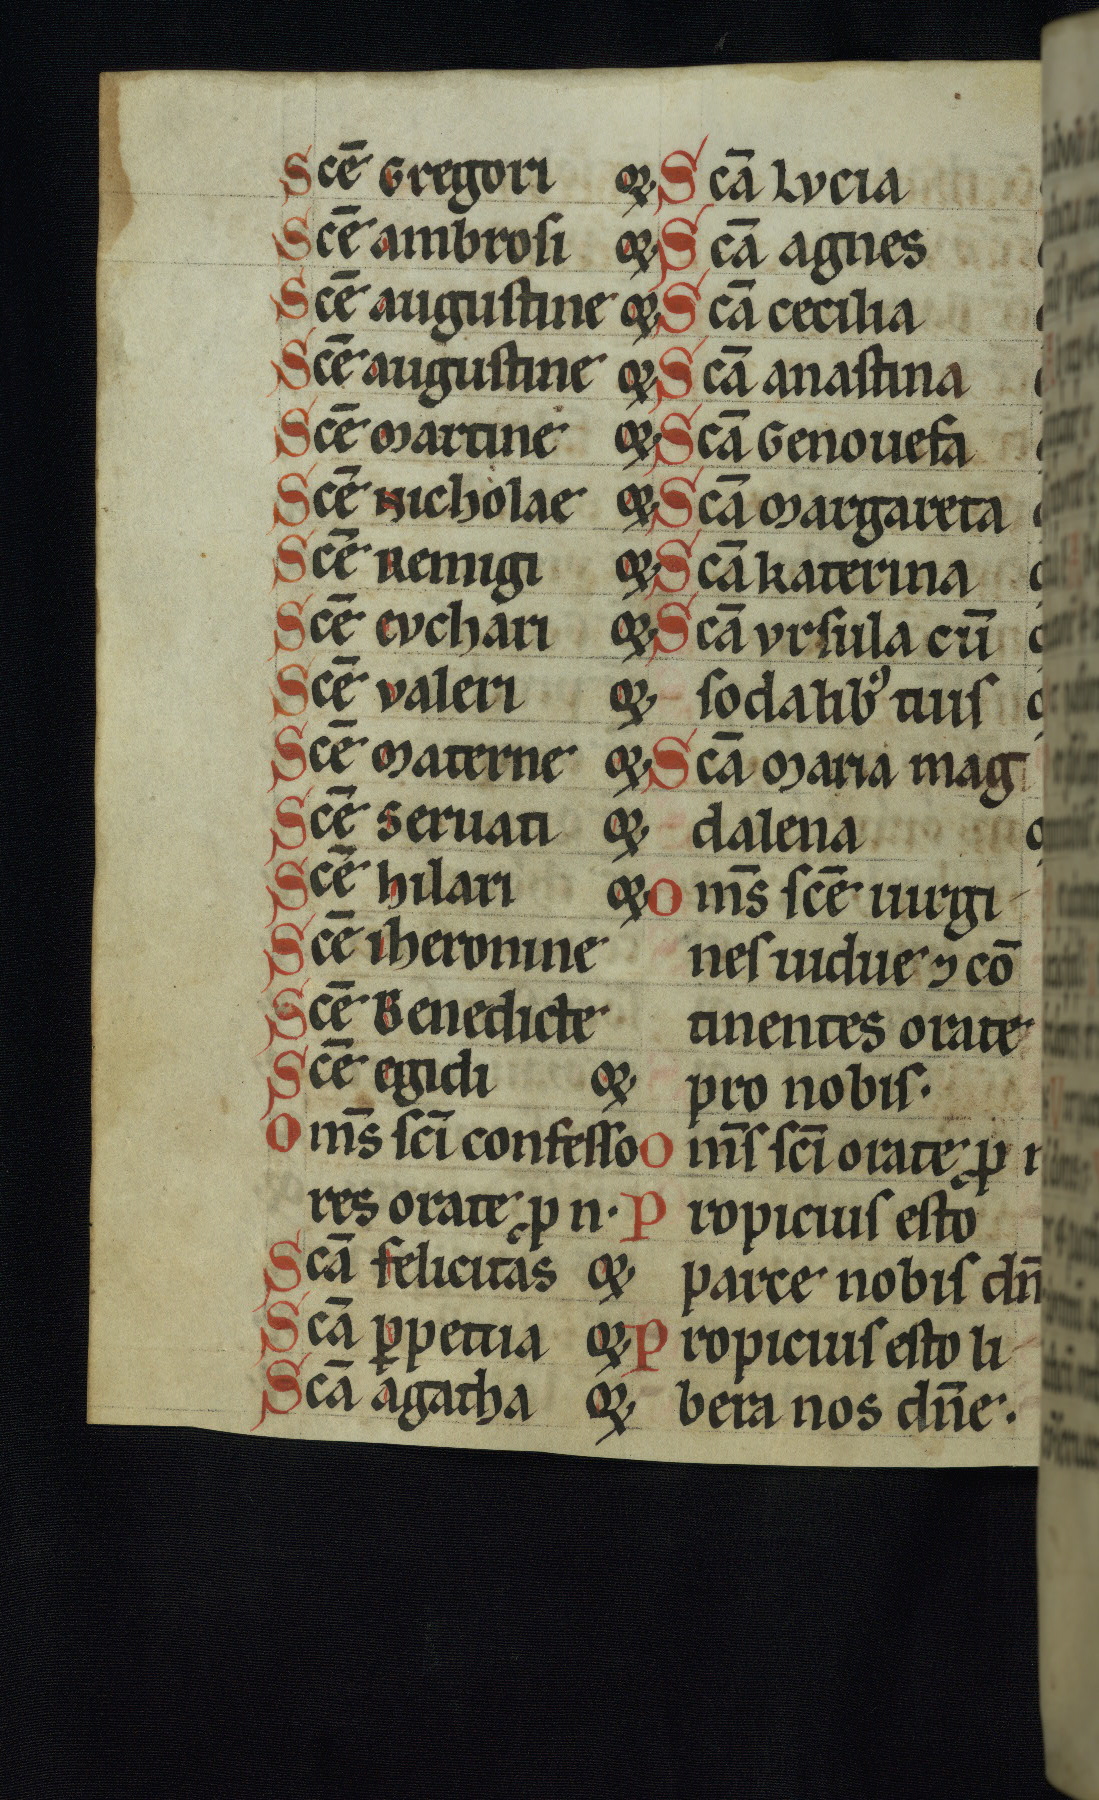 Scē Gregori oꝝ
Scē ambrosi oꝝ
Scē augustine oꝝ
Scē augustine oꝝ
Scē martine oꝝ
Scē Nicholae oꝝ
Scē Remigi oꝝ
Scē evchari oꝝ
Scē valeri oꝝ
Scē materne oꝝ
Scē Seruati oꝝ
Scē hilari oꝝ
Scē iheronine
Scē Benedicte
Scē egidi oꝝ
Om̄s scī confesso
res orate p n.
Scā felicitas oꝝ
Scā ꝑpetua oꝝ
Scā agatha oꝝ
Scā Lvcia
Scā agnes
Scā cecilia
Scā anastina
Scā Genouefa
Scā margareta
Scā katerina
Scā vrsula cū
sodalibꝰ tuis
Scā maria mag
dalena
Om̄s scē uirgi
nes uidue ⁊ cō
tinentes orate
pro nobis.
Om̄s scī orate p̄ n
Propicius esto
parce nobis dn̄
Propicius esto li
bera nos dn̄e.